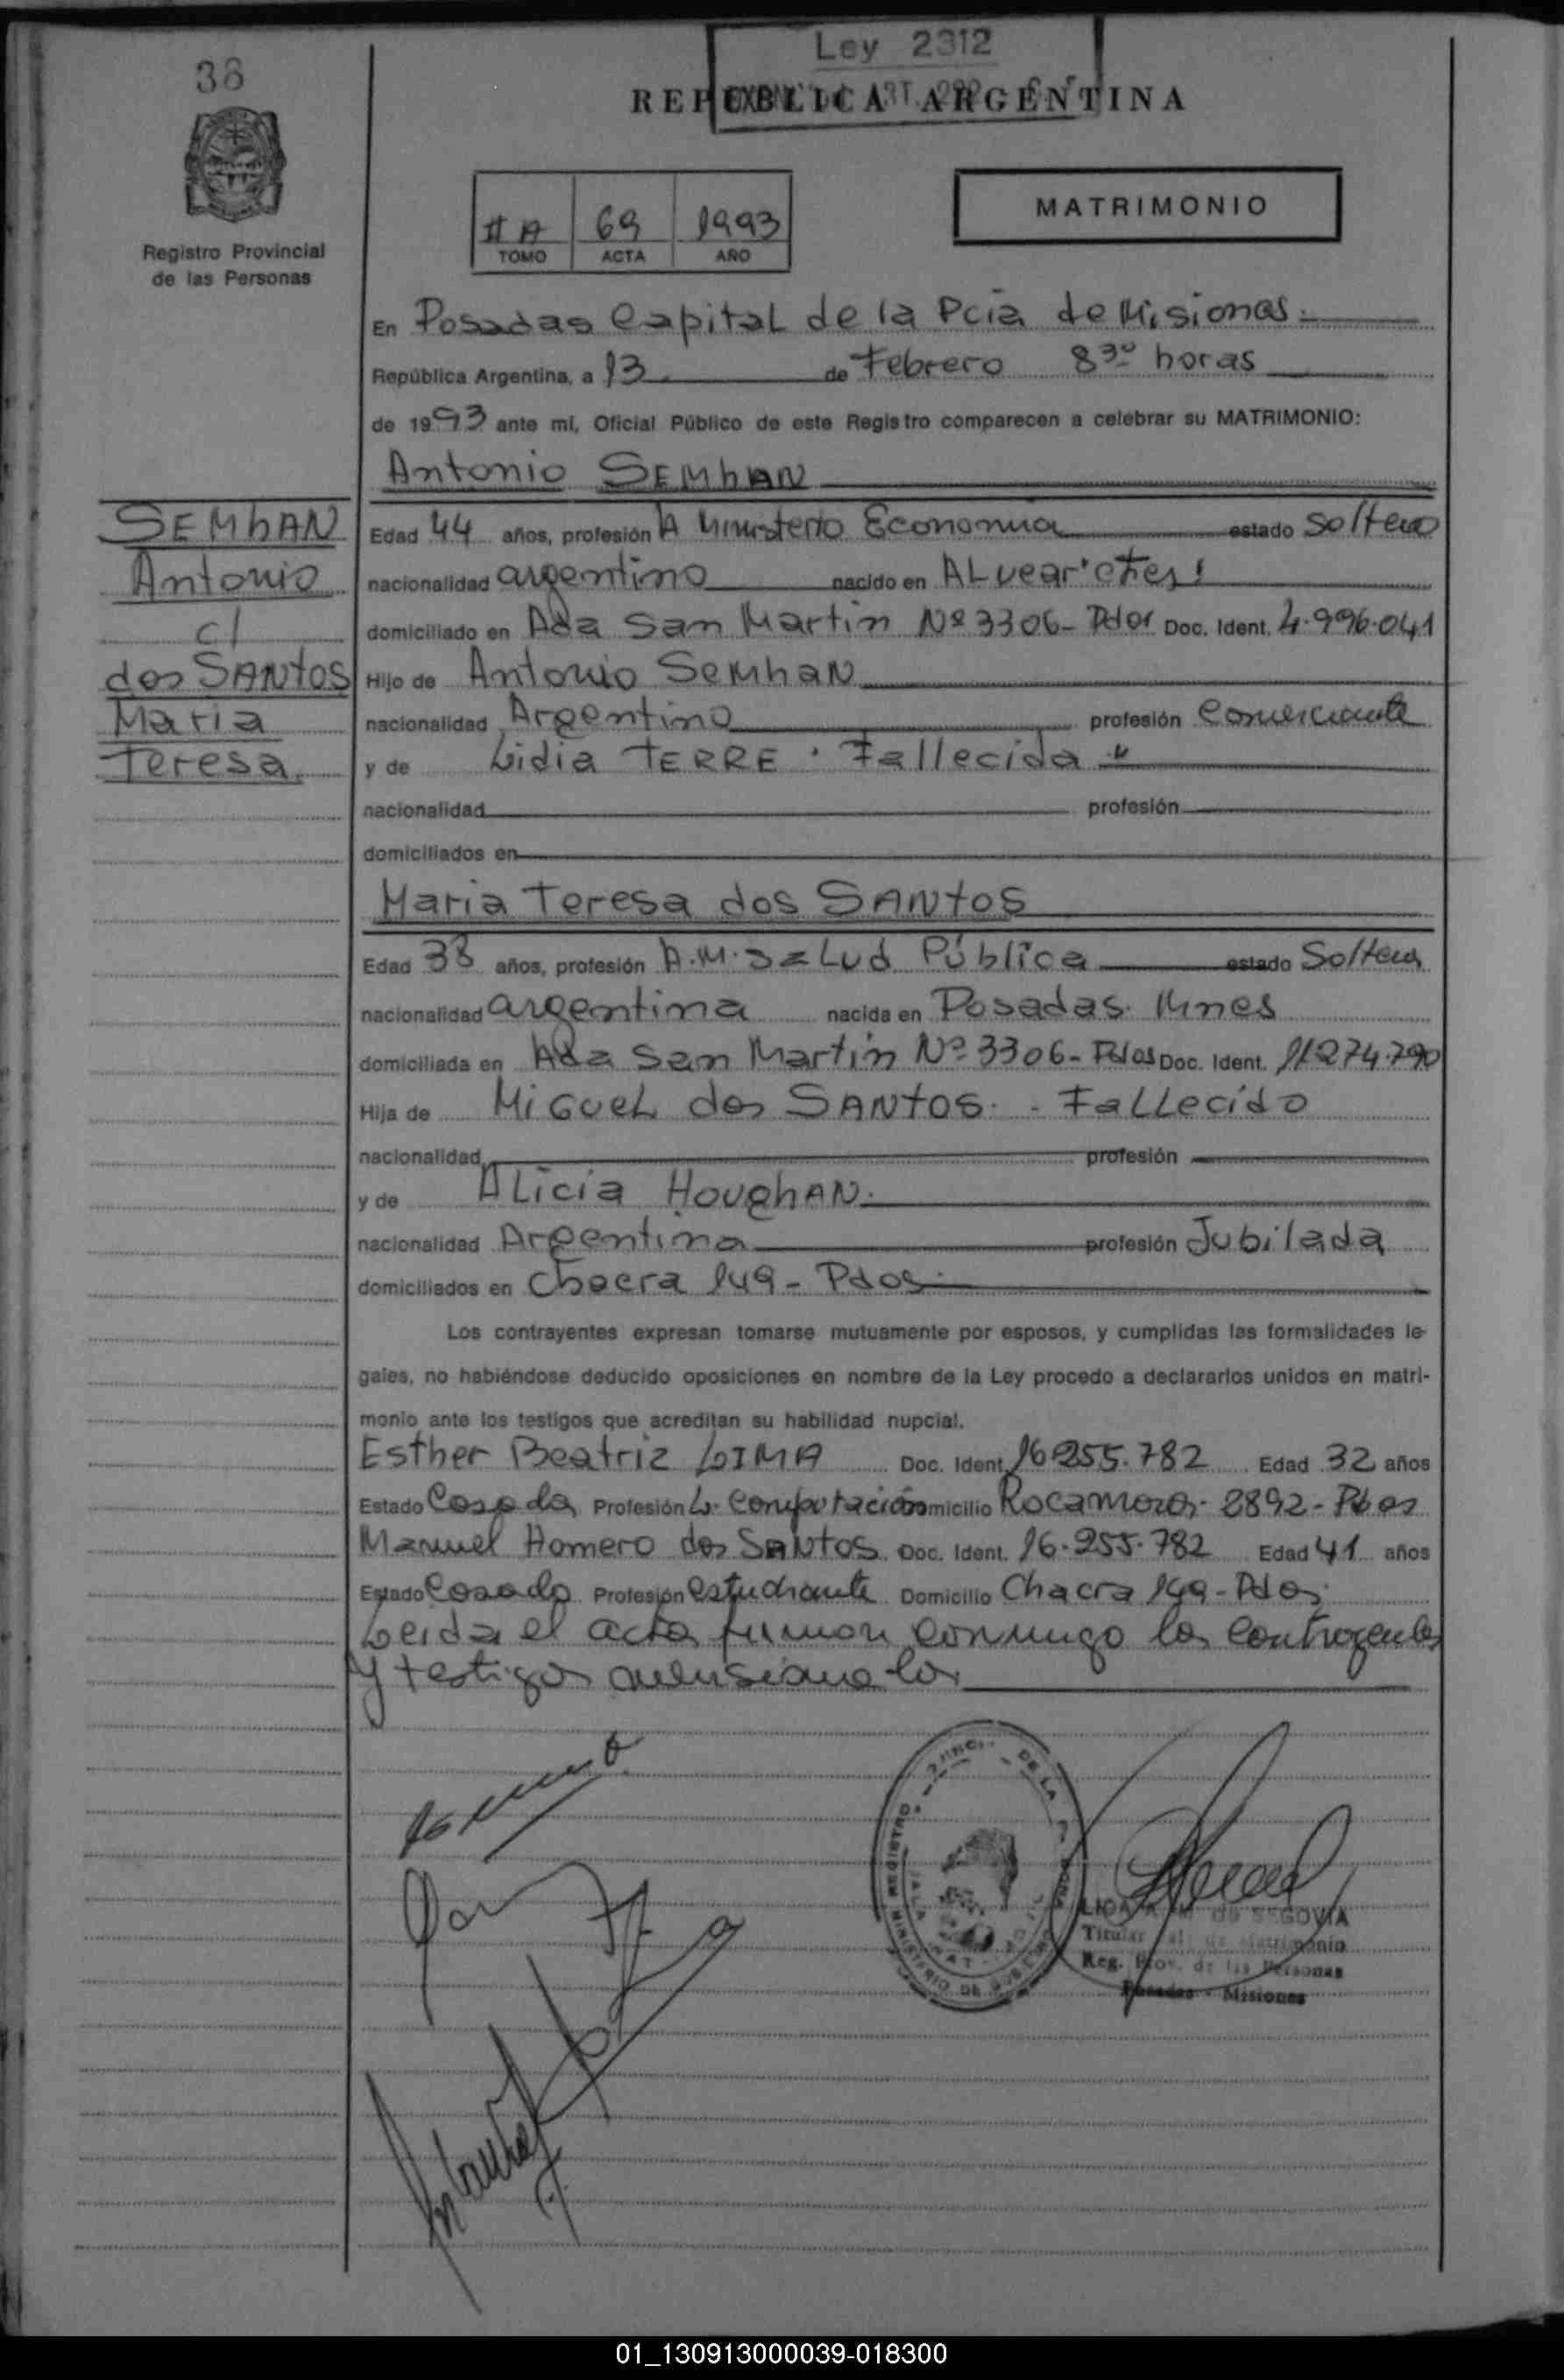 38
Ley 2312
REPUBLICA ARGENTINA
Registro Provincial
de las Personas
II A 69 1993
TOMO ACTA AÑO
MATRIMONIO
En Posadas Capital de la Pcia de Misiones
República Argentina, a 13 de Febrero 8 30 horas
de 1993 ante mí, Oficial Público de este Registro comparecen a celebrar su MATRIMONIO:
Antonio SEMhAN
SEMhAN
Antonio
c/
dos SANtOS
Maria
Teresa
Edad 44 años, profesión A Ministerio Economia estado soltero
nacionalidad argentino nacido en ALvear Ctes
domiciliado en Ada San Martin Nº 3306- Pdos Doc. Ident. 4.996.041
Hijo de Antonio SemhaN
nacionalidad Argentino profesión Comerciante
y de Lidia TERRE . Fallecida
nacionalidad profesión
domiciliados en
Maria Teresa dos SANtOS
Edad 38 años, profesión A.M. SaLud Pública estado Soltera
nacionalidad argentina nacida en Posadas. Mnes
domiciliada en Ada San Martin Nº 3306- Pdos Doc. Ident. 11274.790
Hija de MiGueL dos SANtOS. - FaLLecido
nacionalidad profesión
y de ALicia HoughAN.
nacionalidad Argentina profesión Jubilada
domiciliados en Chacra 149- Pdos
Los contrayentes expresan tomarse mutuamente por esposos, y cumplidas las formalidades le-
gales, no habiéndose deducido oposiciones en nombre de la Ley procedo a declararlos unidos en matri-
monio ante los testigos que acreditan su habilidad nupcial.
Esther Beatriz LIMA Doc. Ident. 16.255.782 Edad 32 años
Estado Casada Profesión L. Computación Domicilio Rocamora 2892- Pdos
Manuel Homero dos SaNtos Doc. Ident. 16.255.782 Edad 41 años
Estado Casado Profesión estudiante Domicilio Chacra 149- Pdos
Leida el acta firman conmigo los contrayentes
y testigos mensionados
DE SEGOVIA
Titular de Matrimonio
Reg. Prov. de las Personas
Posadas - Misiones
01_130913000039-018300